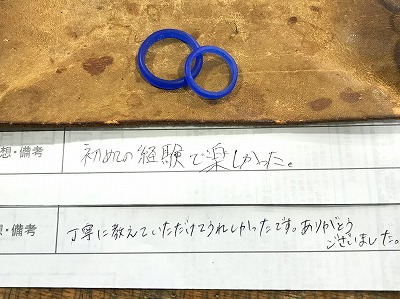 想・備考
初めての経験で楽しかった。
想・備考
丁寧に教えていただけてうれしかったです。ありがとう
ございました。